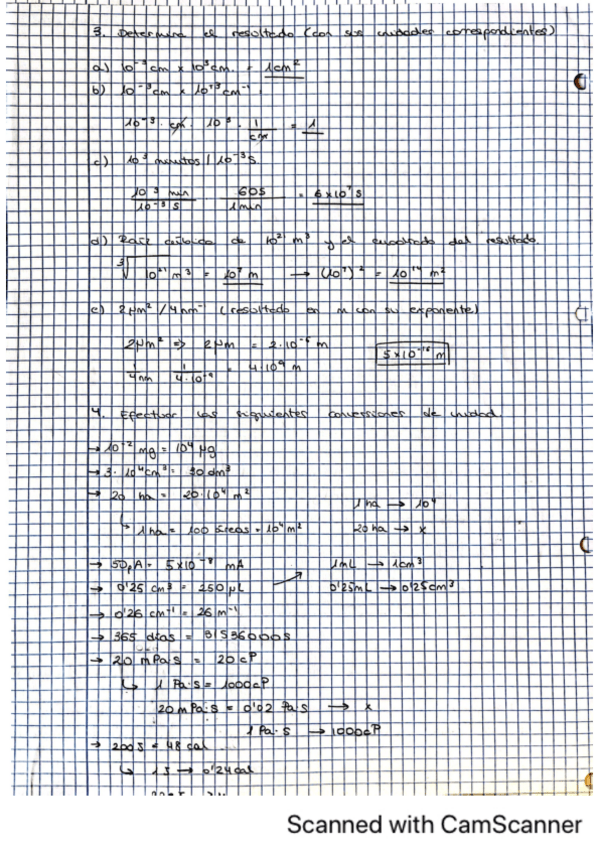 3. Determina el resultado (con sus unidades correspondientes)
a) 10⁻³cm x 10³cm. = 1cm²
b) 10⁻³cm x 10⁺³cm⁻¹.
10⁻³ · cm · 10³ · 1/cm = 1
c) 10³ minutos / 10⁻³s
10³ min / 10⁻³ s 60s / 1min = 6x10⁷ s
d) Raíz cúbica de 10²¹ m³ y el cuadrado del resultado
³√10²¹ m³ = 10⁷ m → (10⁷)² = 10¹⁴ m²
e) 2μm² / 4nm⁻¹ (resultado en m con su exponente)
2μm² => 2μm = 2·10⁻⁶ m
5x10⁻¹⁶ m
1/4nm 1/4·10⁻⁹ = 4·10⁹ m
4. Efectuar las siguientes conversiones de unidad
→ 10⁻² mg = 10⁴ μg
→ 3·10⁴cm³ = 30 dm³
→ 20 ha = 20·10⁴ m²
1 ha → 10⁴
↳ 1 ha = 100 áreas = 10⁴ m²
20 ha → x
→ 50pA = 5x10⁻⁸ mA
1mL → 1cm³
→ 0'25 cm³ = 250 μL
0'25mL → 0'25cm³
→ 0'26 cm⁻¹ = 26 m⁻¹
→ 365 días = 31536000s
→ 20 mPa·s = 20 cP
↳ 1 Pa·s = 1000cP
20 mPa·s = 0'02 Pa·s → x
1 Pa·s → 1000cP
→ 200J = 48 cal
↳ 1J → 0'24cal
Scanned with CamScanner